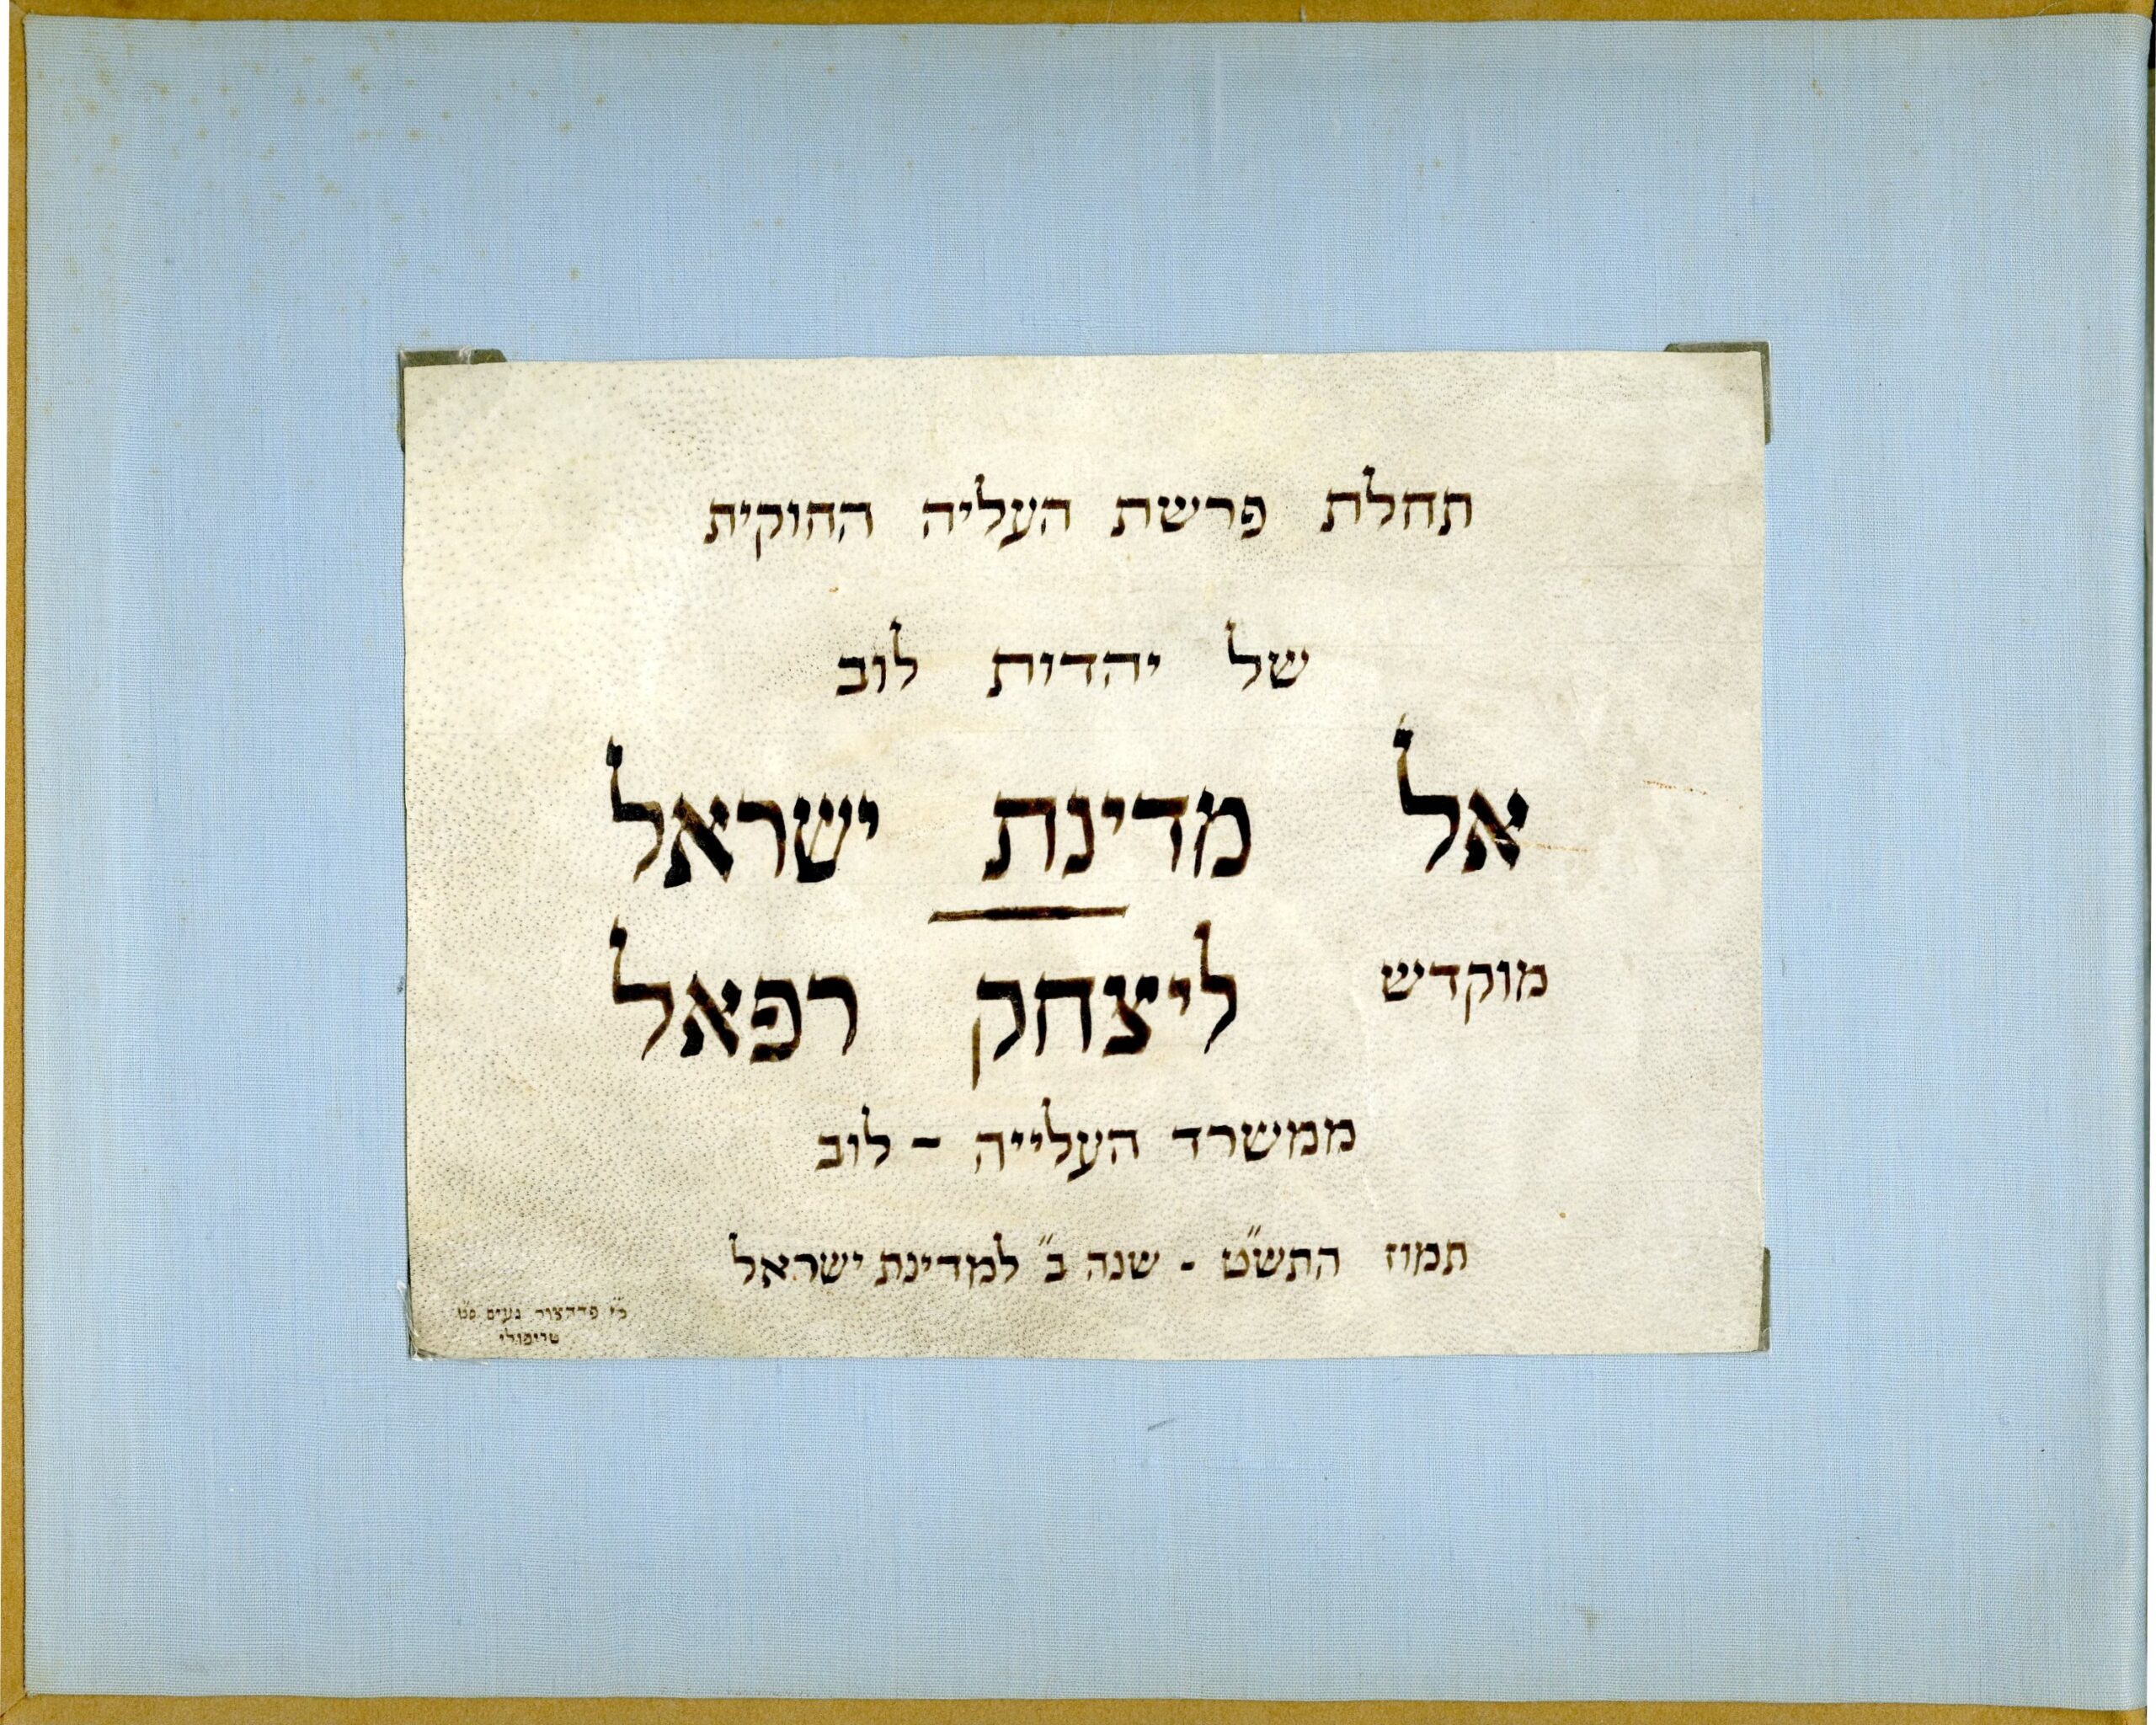 תחלת פרשת העליה החוקית
של יהדות לוב
אל מדינת ישראל
מוקדש ליצחק רפאל
ממשרד העלייה - לוב
תמוז התש"ט - שנה ב" למדינת ישראל
פדהצור נעים
טריפולי